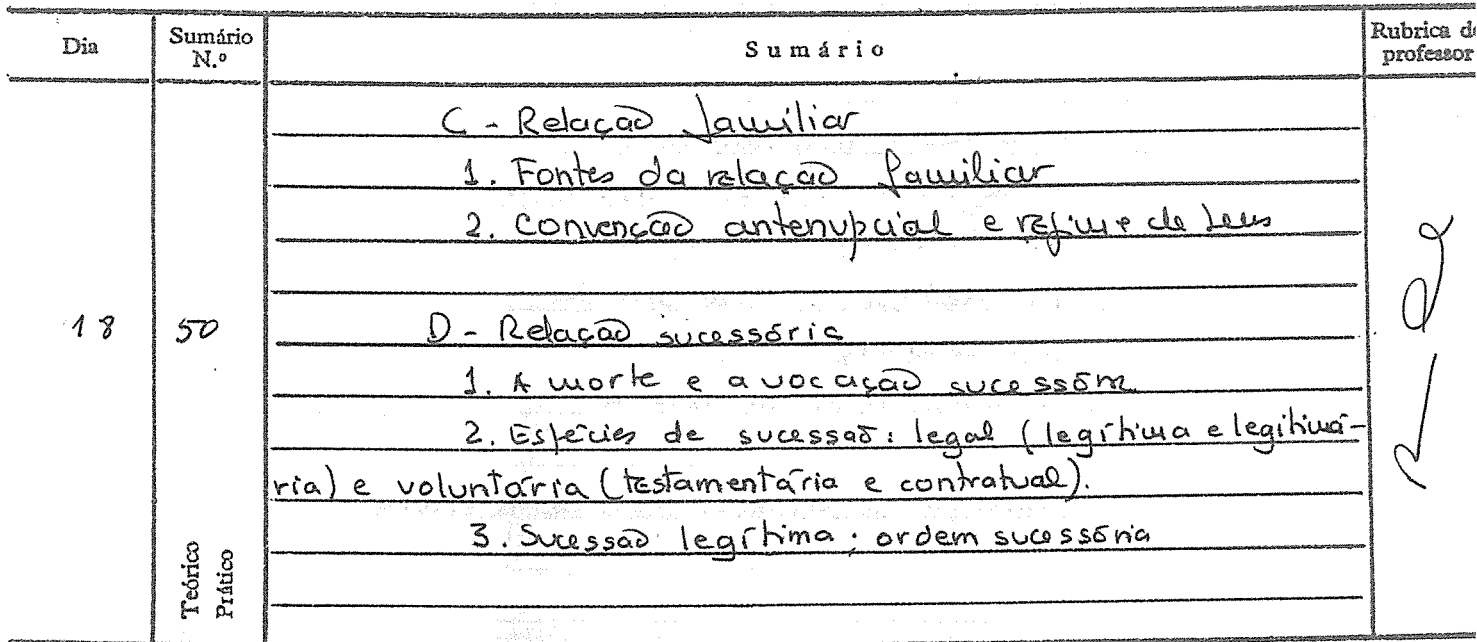 Dia
Sumário N.º
Sumário
Rubrica do professor
C - Relação familiar
1. Fontes da relação familiar
2. Convenção antenupcial e regime de bens
18
50
D - Relação sucessória
1. A morte e a vocação sucessória
2. Espécies de sucessão: legal (legítima e legitimá-
ria) e voluntária (testamentária e contratual).
3. Sucessão legítima: ordem sucessória
Teórico
Prático